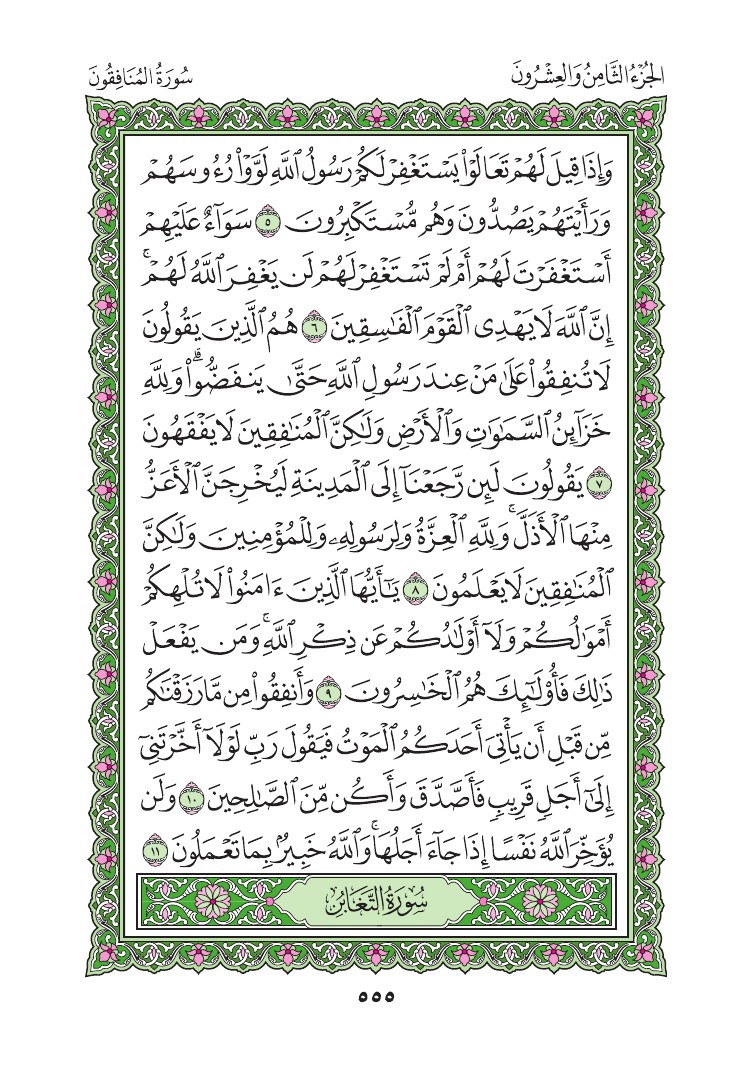 الجُزْءُ الثَّامِنُ وَالعِشْرُونَ
سُورَةُ المُنَافِقُونَ
وَإِذَا قِيلَ لَهُمْ تَعَالَوْا۟ يَسْتَغْفِرْ لَكُمْ رَسُولُ ٱللَّهِ لَوَّوْا۟ رُءُوسَهُمْ
وَرَأَيْتَهُمْ يَصُدُّونَ وَهُم مُّسْتَكْبِرُونَ ٥ سَوَآءٌ عَلَيْهِمْ
أَسْتَغْفَرْتَ لَهُمْ أَمْ لَمْ تَسْتَغْفِرْ لَهُمْ لَن يَغْفِرَ ٱللَّهُ لَهُمْۚ
إِنَّ ٱللَّهَ لَا يَهْدِى ٱلْقَوْمَ ٱلْفَـٰسِقِينَ ٦ هُمُ ٱلَّذِينَ يَقُولُونَ
لَا تُنفِقُوا۟ عَلَىٰ مَنْ عِندَ رَسُولِ ٱللَّهِ حَتَّىٰ يَنفَضُّوا۟ۗ وَلِلَّهِ
خَزَآئِنُ ٱلسَّمَـٰوَٰتِ وَٱلْأَرْضِ وَلَـٰكِنَّ ٱلْمُنَـٰفِقِينَ لَا يَفْقَهُونَ
٧ يَقُولُونَ لَئِن رَّجَعْنَآ إِلَى ٱلْمَدِينَةِ لَيُخْرِجَنَّ ٱلْأَعَزُّ
مِنْهَا ٱلْأَذَلَّۚ وَلِلَّهِ ٱلْعِزَّةُ وَلِرَسُولِهِۦ وَلِلْمُؤْمِنِينَ وَلَـٰكِنَّ
ٱلْمُنَـٰفِقِينَ لَا يَعْلَمُونَ ٨ يَـٰٓأَيُّهَا ٱلَّذِينَ ءَامَنُوا۟ لَا تُلْهِكُمْ
أَمْوَٰلُكُمْ وَلَآ أَوْلَـٰدُكُمْ عَن ذِكْرِ ٱللَّهِۚ وَمَن يَفْعَلْ
ذَٰلِكَ فَأُو۟لَـٰٓئِكَ هُمُ ٱلْخَـٰسِرُونَ ٩ وَأَنفِقُوا۟ مِن مَّا رَزَقْنَـٰكُم
مِّن قَبْلِ أَن يَأْتِىَ أَحَدَكُمُ ٱلْمَوْتُ فَيَقُولَ رَبِّ لَوْلَآ أَخَّرْتَنِىٓ
إِلَىٰٓ أَجَلٍ قَرِيبٍ فَأَصَّدَّقَ وَأَكُن مِّنَ ٱلصَّـٰلِحِينَ ١٠ وَلَن
يُؤَخِّرَ ٱللَّهُ نَفْسًا إِذَا جَآءَ أَجَلُهَاۚ وَٱللَّهُ خَبِيرٌۢ بِمَا تَعْمَلُونَ ١١
سُورَةُ التَّغَابُنِ
٥٥٥